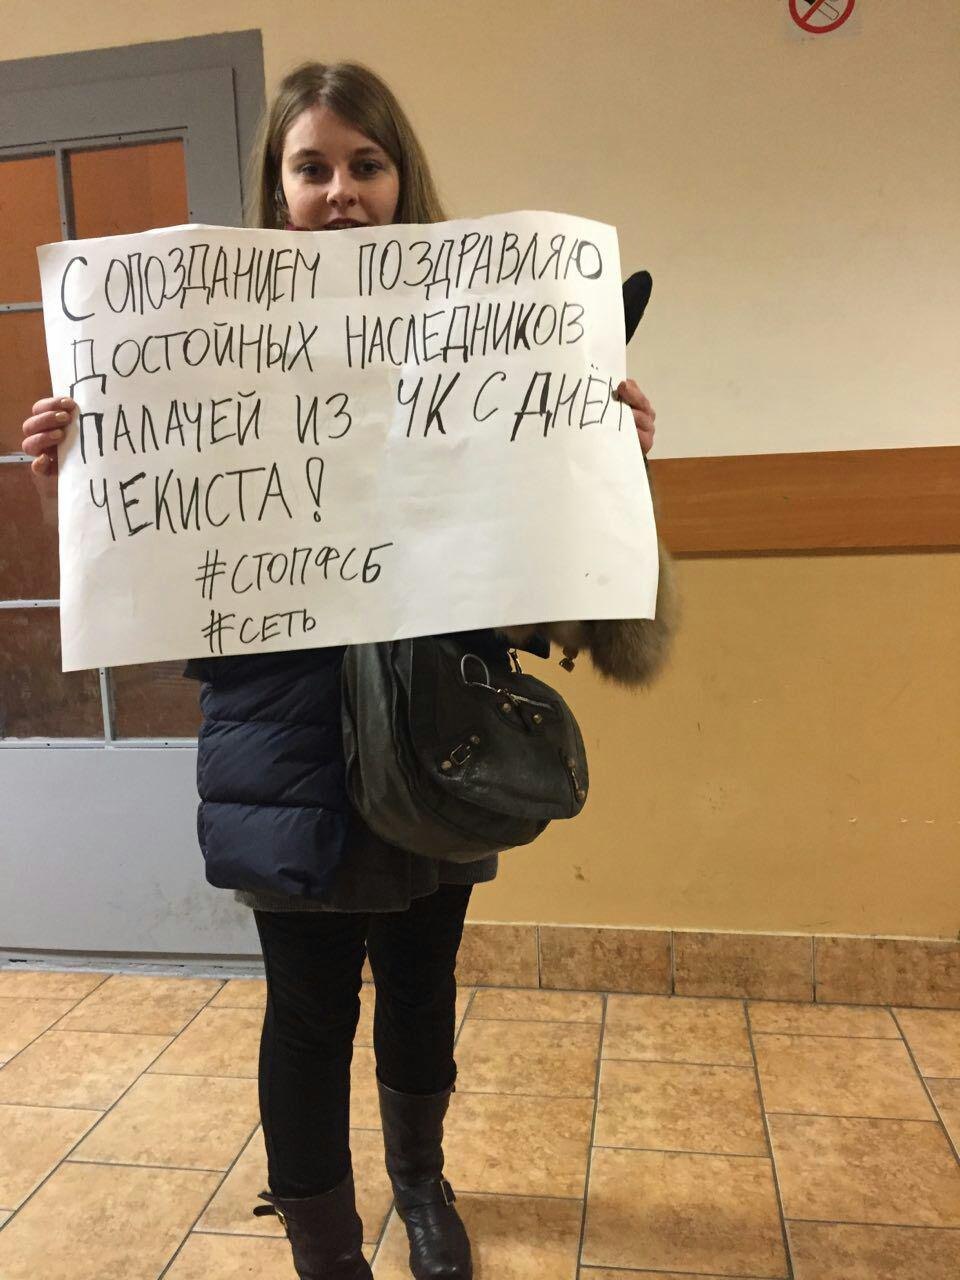 С ОПОЗДАНИЕМ ПОЗДРАВЛЯЮ
ДОСТОЙНЫХ НАСЛЕДНИКОВ
ПАЛАЧЕЙ ИЗ ЧК С ДНЁМ
ЧЕКИСТА!
#СТОПФСБ
#СЕТЬ